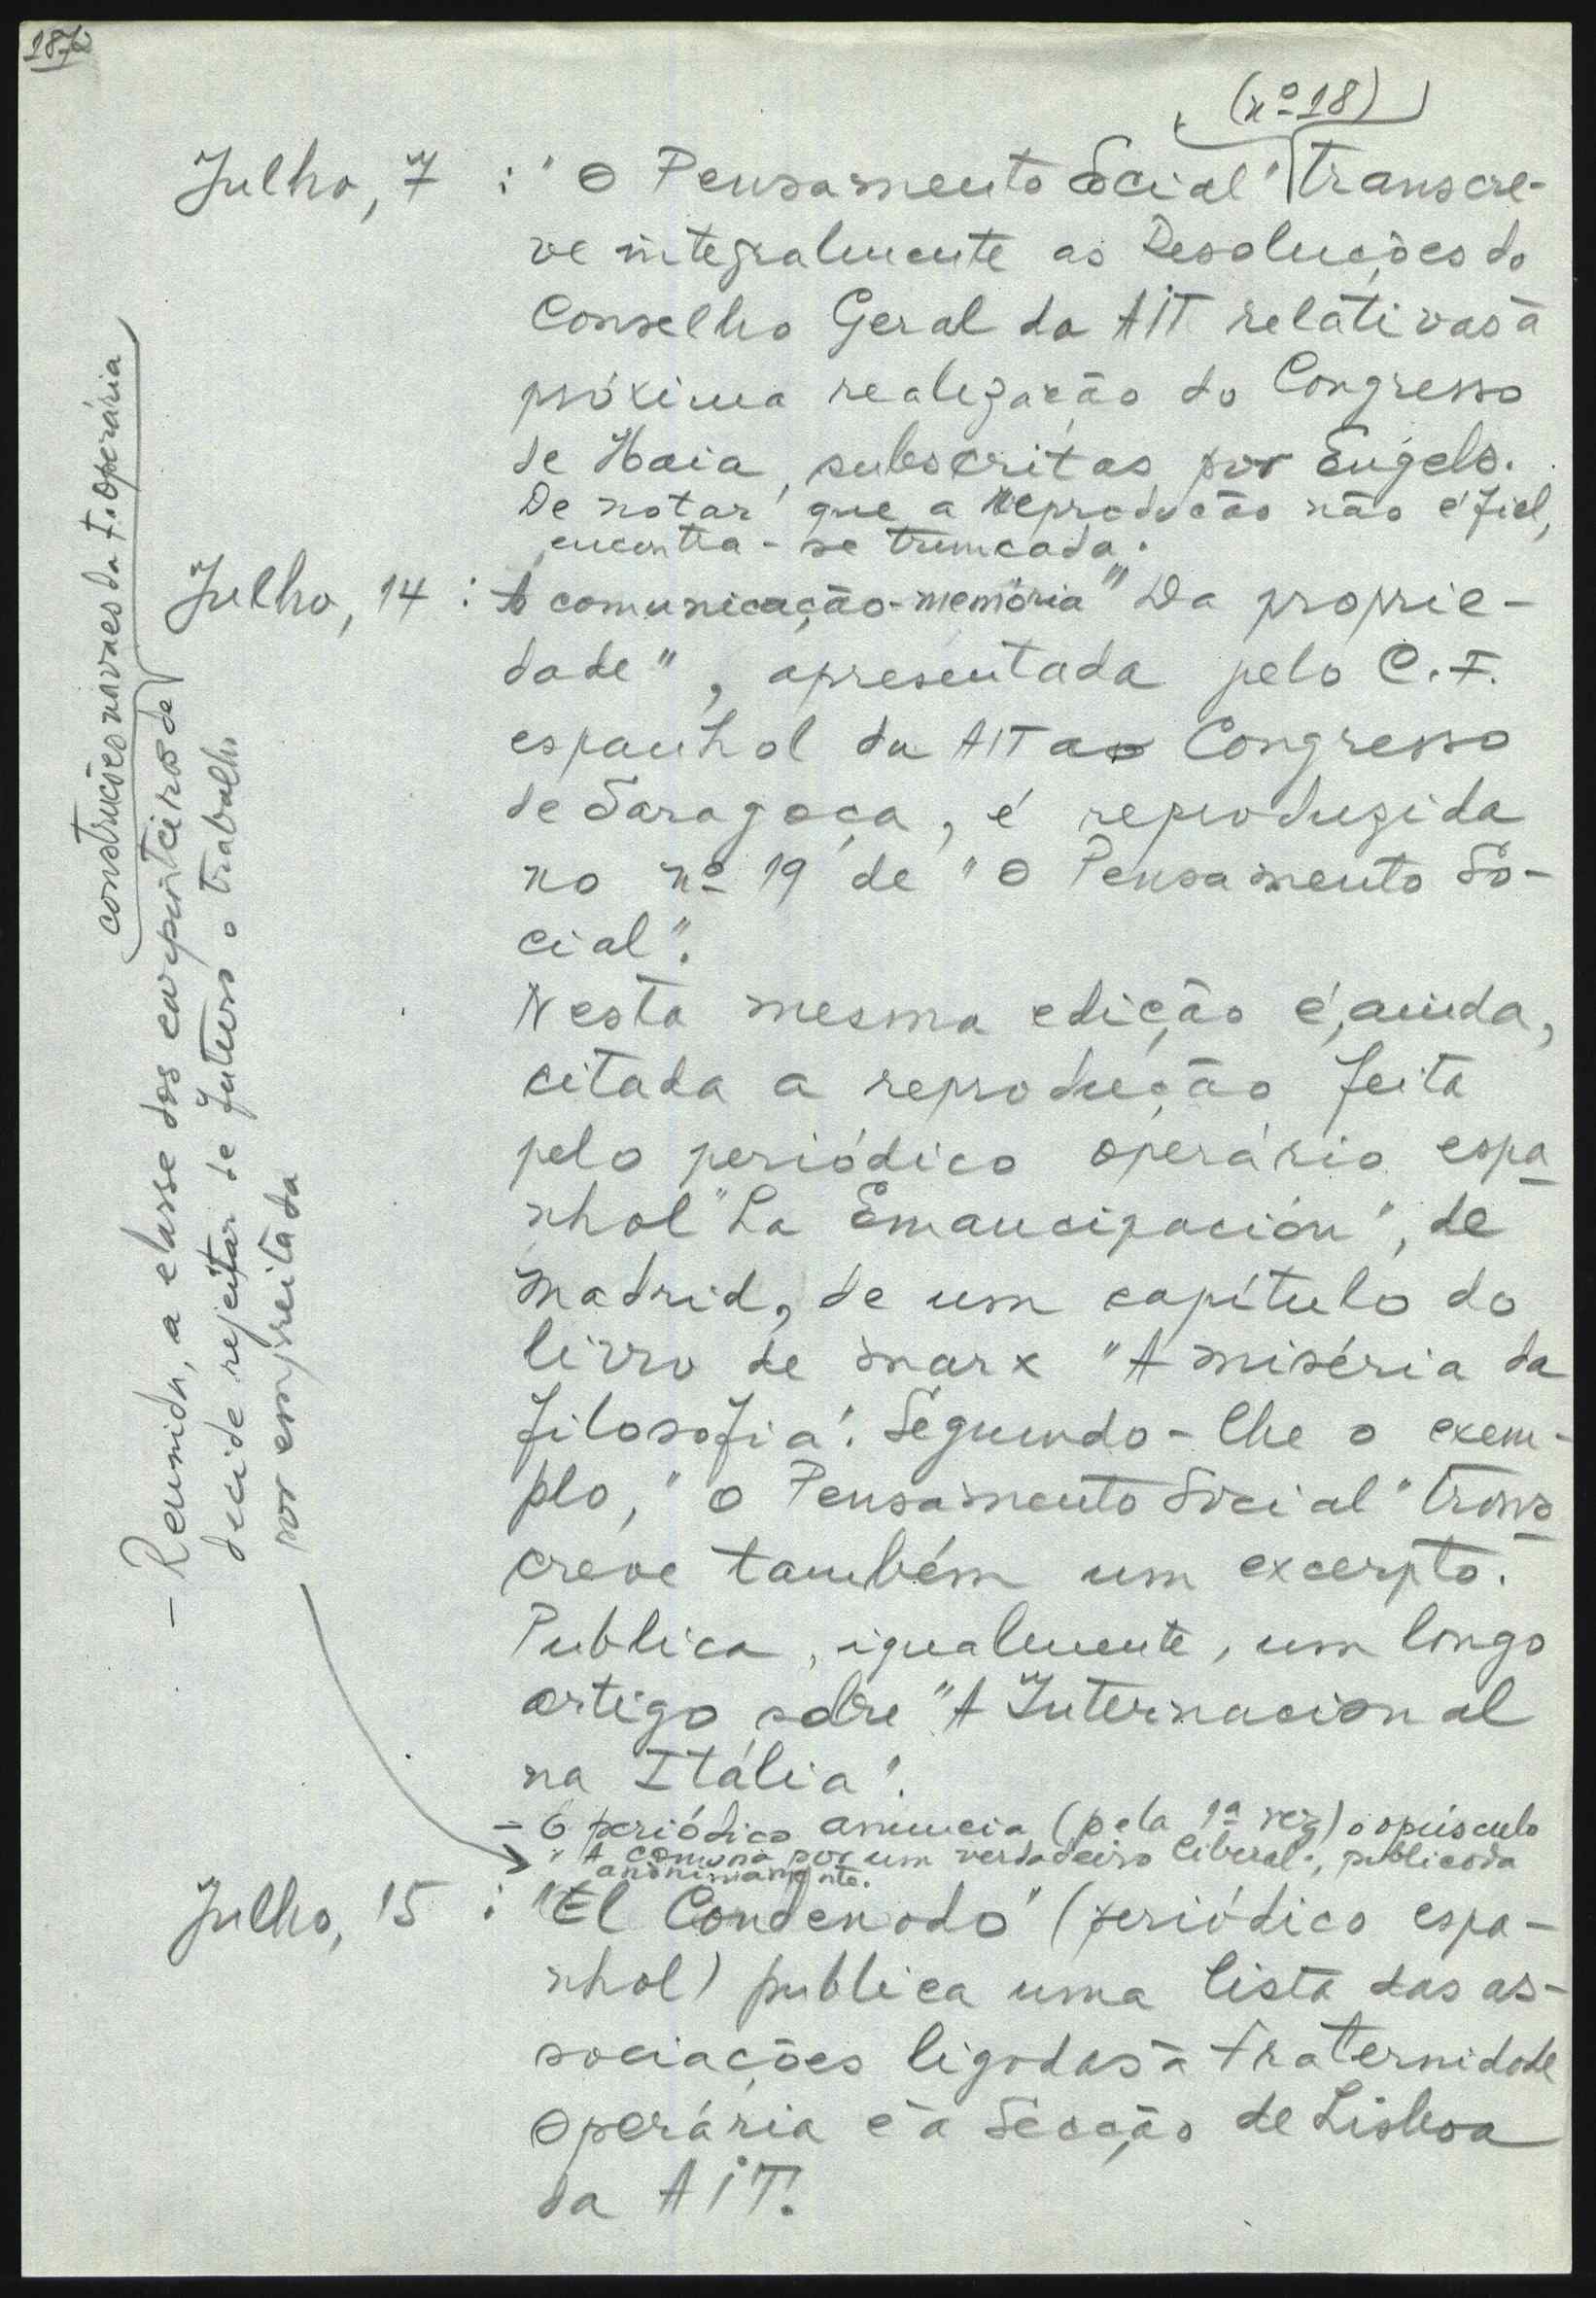 1872
(nº 18)
Julho, 7 : "O Pensamento Social" transcre-
ve integralmente as Resoluções do
Conselho Geral da AIT relativas à
próxima realização do Congresso
de Haia, subscritas por Engels.
De notar que a reprodução não é fiel,
encontra-se truncada.
Julho, 14 : A comunicação-memória "Da proprie-
dade", apresentada pelo C.F.
espanhol da AIT ao Congresso
de Saragoça, é reproduzida
no nº 19 de "O Pensamento So-
cial".
Nesta mesma edição é, ainda,
citada a reprodução feita
pelo periódico operário espa
nhol "La Emancipación", de
Madrid, de um capítulo do
livro de Marx "A miséria da
filosofia". Seguindo-lhe o exem-
plo, "O Pensamento Social" trans
creve também um excerpto.
Publica, igualmente, um longo
artigo sobre "A Internacional
na Itália".
- O periódico anuncia (pela 1ª vez) o opúsculo
"A comuna por um verdadeiro liberal", publicada
anonimamente.
Julho, 15 : "El Condenado" (periódico espa-
nhol) publica uma lista das as-
sociações ligadas à Fraternidade
Operária e à Secção de Lisboa
da AIT.
- Reunida, a classe dos carpinteiros de
construções navaes da F. operária
decide rejeitar de futuro o trabalho
por empreitada